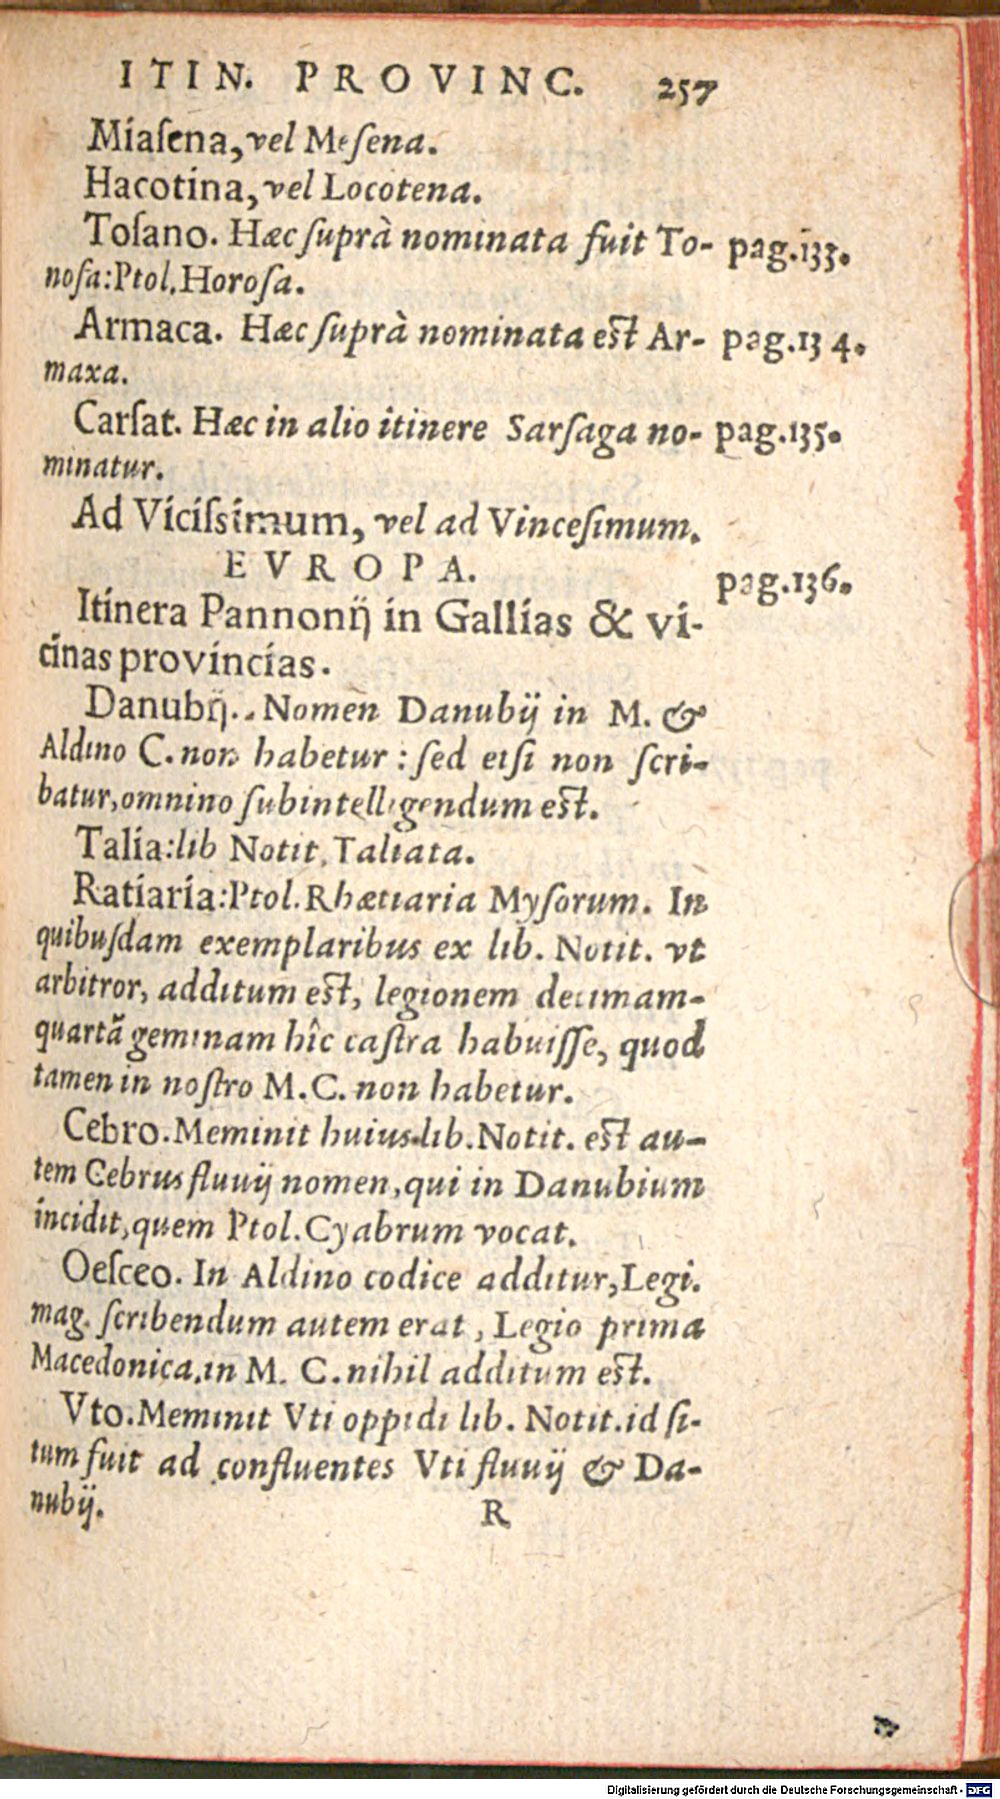 ITIN. PROVINC. 257
Miaſena, vel Meſena.
Hacotina, vel Locotena.
Toſano. Hæc ſuprà nominata fuit To- pag.133.
noſa: Ptol. Horoſa.
Armaca. Hæc ſuprà nominata eſt Ar- pag.134.
maxa.
Carſat. Hæc in alio itinere Sarſaga no- pag.135.
minatur.
Ad Viciſsimum, vel ad Vinceſimum.
EVROPA.
pag.136.
Itinera Pannonij in Gallias & vi-
cinas provincias.
Danubij. Nomen Danubij in M. &
Aldino C. non habetur: ſed etſi non ſcri-
batur, omnino ſubintelligendum eſt.
Talia: lib Notit. Taliata.
Ratiaria: Ptol. Rhætiaria Myſorum. In
quibuſdam exemplaribus ex lib. Notit. vt
arbitror, additum eſt, legionem decimam-
quartã geminam hîc caſtra habuiſſe, quod
tamen in noſtro M.C. non habetur.
Cebro. Meminit huius lib. Notit. eſt au-
tem Cebrus fluuij nomen, qui in Danubium
incidit, quem Ptol. Cyabrum vocat.
Oeſceo. In Aldino codice additur, Legi.
mag. ſcribendum autem erat, Legio prima
Macedonica, in M. C. nihil additum eſt.
Vto. Meminit Vti oppidi lib. Notit. id ſi-
tum fuit ad confluentes Vti fluuij & Da-
nubij. R
Digitalisierung gefördert durch die Deutsche Forschungsgemeinschaft - DFG